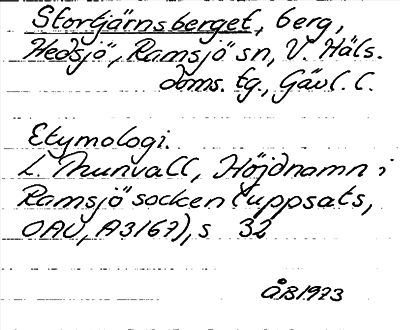 Stortjärnsberget, berg,
Hedsjö, Ramsjö sn, V. Häls.
doms. tg., Gävl. l.
Etymologi.
L. Thunvall, Höjdnamn i
Ramsjö socken (uppsats,
OAU, A3167), s 32
ÅB 1973